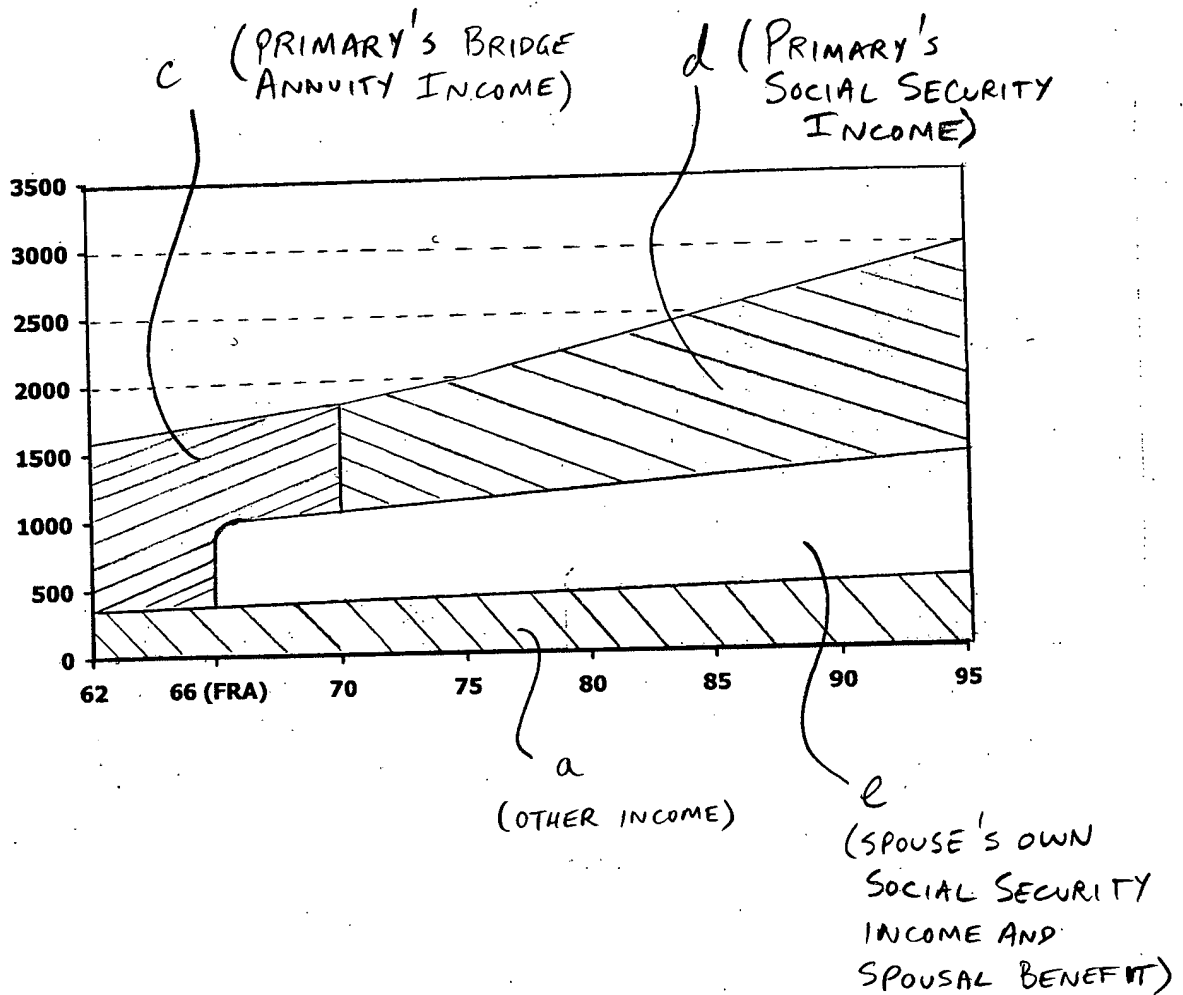 c
(PRIMARY'S BRIDGE
ANNUITY INCOME)
d (PRIMARY'S
SOCIAL SECURITY
INCOME)
3500
3000
2500
2000
1500
1000
500
0
62 66 (FRA) 70 75 80 85 90 95
a
(OTHER INCOME)
e
(SPOUSE'S OWN
SOCIAL SECURITY
INCOME AND
SPOUSAL BENEFIT)